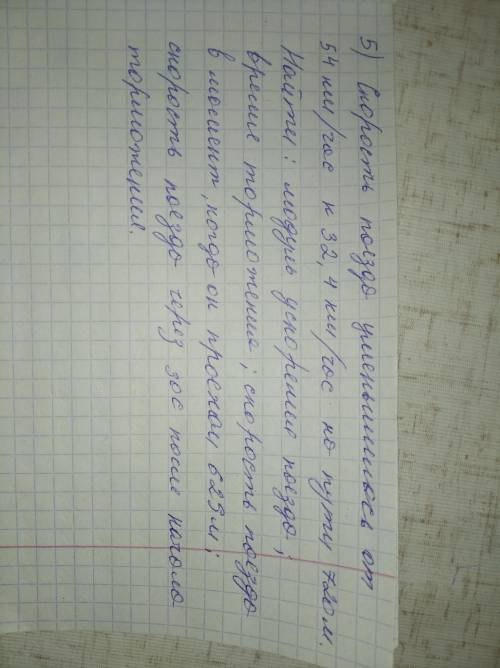 5) Скорость поезда уменьшилась от
54 км/час к 32,4 км/час на пути 720м.
Найти: модуль ускорение поезда;
время торможения; скорость поезда
в момент, когда он проехал 623м;
скорость поезда через 30с после начала
торможения.